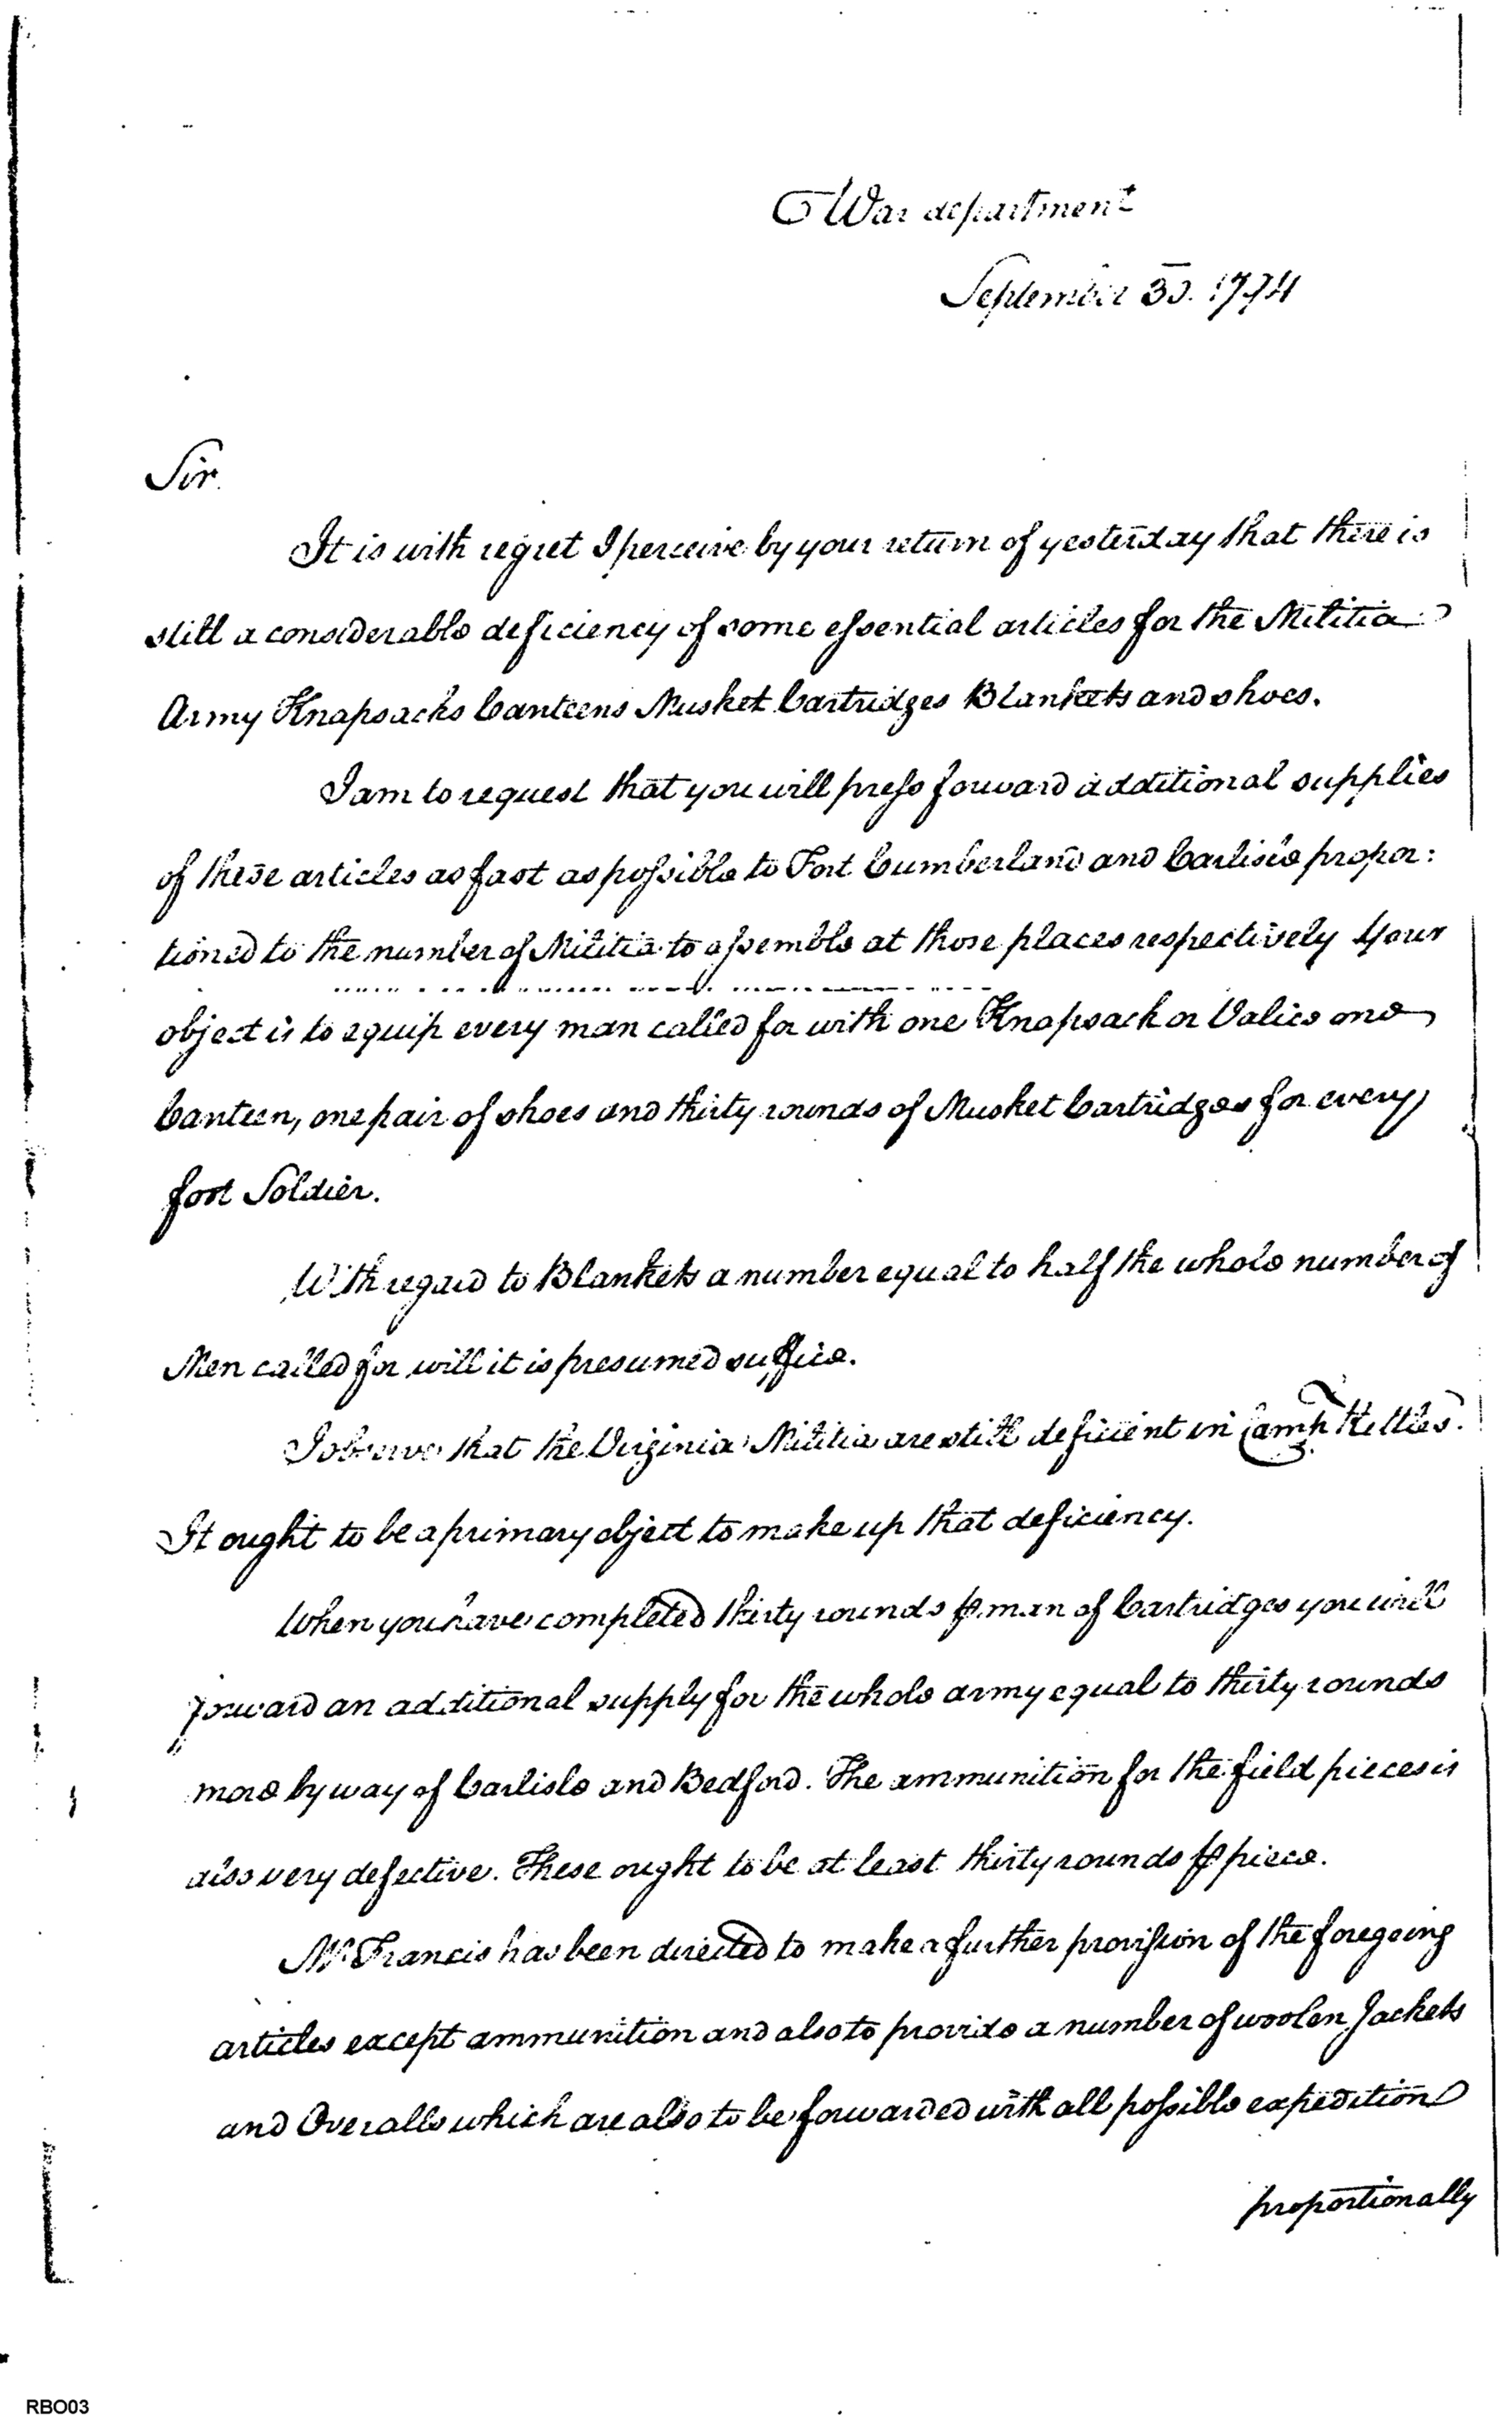 War department
September 30. 1794
Sir.
It is with regret I perceive by your return of yesterday that there is
still a considerable deficiency of some essential articles for the Militia
Army Knapsacks Canteens Musket Cartridges Blankets and shoes.
I am to request that you will press forward additional supplies
of these articles as fast as possible to Fort Cumberland and Carlisle propor:
tioned to the number of Militia to assemble at those places respectively Your
object is to equip every man called for with one Knapsack or Valice one
Canteen, one pair of shoes and thirty rounds of Musket Cartridges for every
foot Soldier.
With regard to Blankets a number equal to half the whole number of
Men called for will it is presumed suffice.
I observe that the Virginia Militia are still deficient in Camp Kettles.
It ought to be a primary object to make up that deficiency.
When you have completed thirty rounds ⅌ man of Cartridges you will
forward an additional supply for the whole army equal to thirty rounds
more by way of Carlisle and Bedford. The ammunition for the field pieces is
also very defective. These ought to be at least thirty rounds ⅌ piece.
Mr. Francis has been directed to make a further provision of the foregoing
articles except ammunition and also to provide a number of woolen Jackets
and Overalls which are also to be forwarded with all possible expedition
proportionally
RBO03